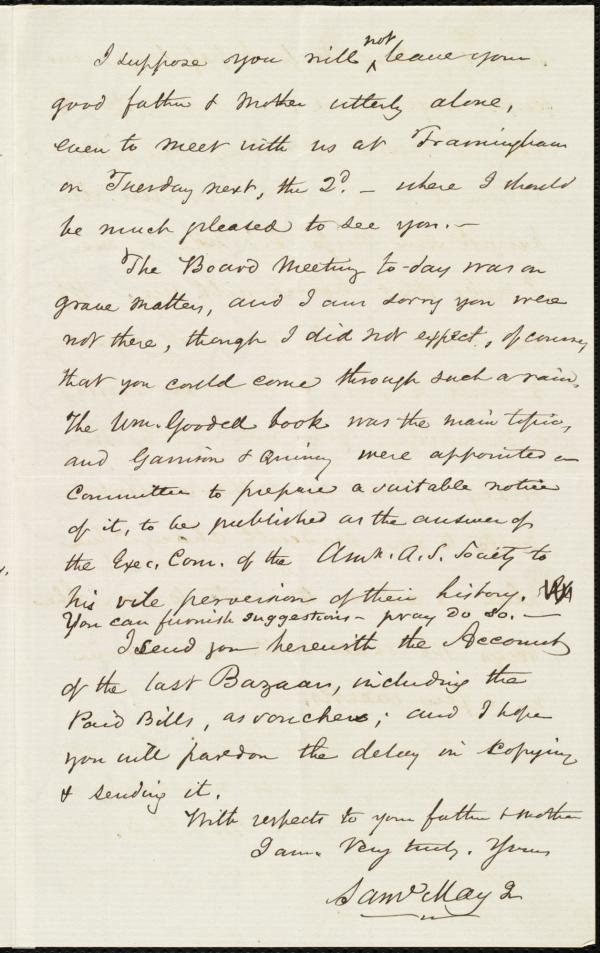 I suppose you will not leave your
good father & mother utterly alone,
even to meet with us at Framingham
on Tuesday next, the 2d. – where I should
be much pleased to see you. –
The Board Meeting to-day was on
grave matters, and I am sorry you were
not there, though I did not expect, of course,
that you could come through such a rain.
The Wm. Goodell book was the main topic,
and Garrison & Quincy were appointed a
Committee to prepare a suitable notice
of it, to be published as the answer of
the Exec. Com. of the Amn. A. S. Society to
his vile perversion of their history.
You can furnish suggestions – pray do so. –
I send you herewith the Accounts
of the last Bazaar, including the
Paid Bills, as vouchers; and I hope
you will pardon the delay in copying
& sending it.
With respects to your father & mother
I am. Very truly. Yours
Saml May Jr